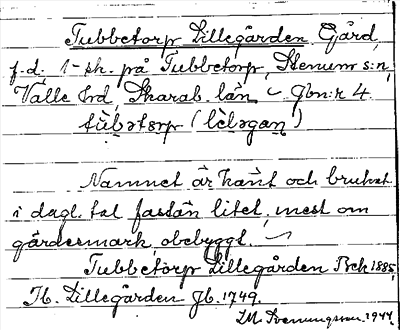 Tubbetorp Lillegården Gård,
f.d. 1 sk. på Tubbetorp, Stenums sn,
Valle hd, Skarab. län ~ Gbn:r 4.
tùbətɔrp (lìləgaɳ)
Namnet är känt och brukat
i dagl. tal fastän litet, mest om
gärdesmark, obebyggt. ~
Tubbetorp Lillegården Bek 1885,
Tb. Lillegården Jb. 1749.
1944.